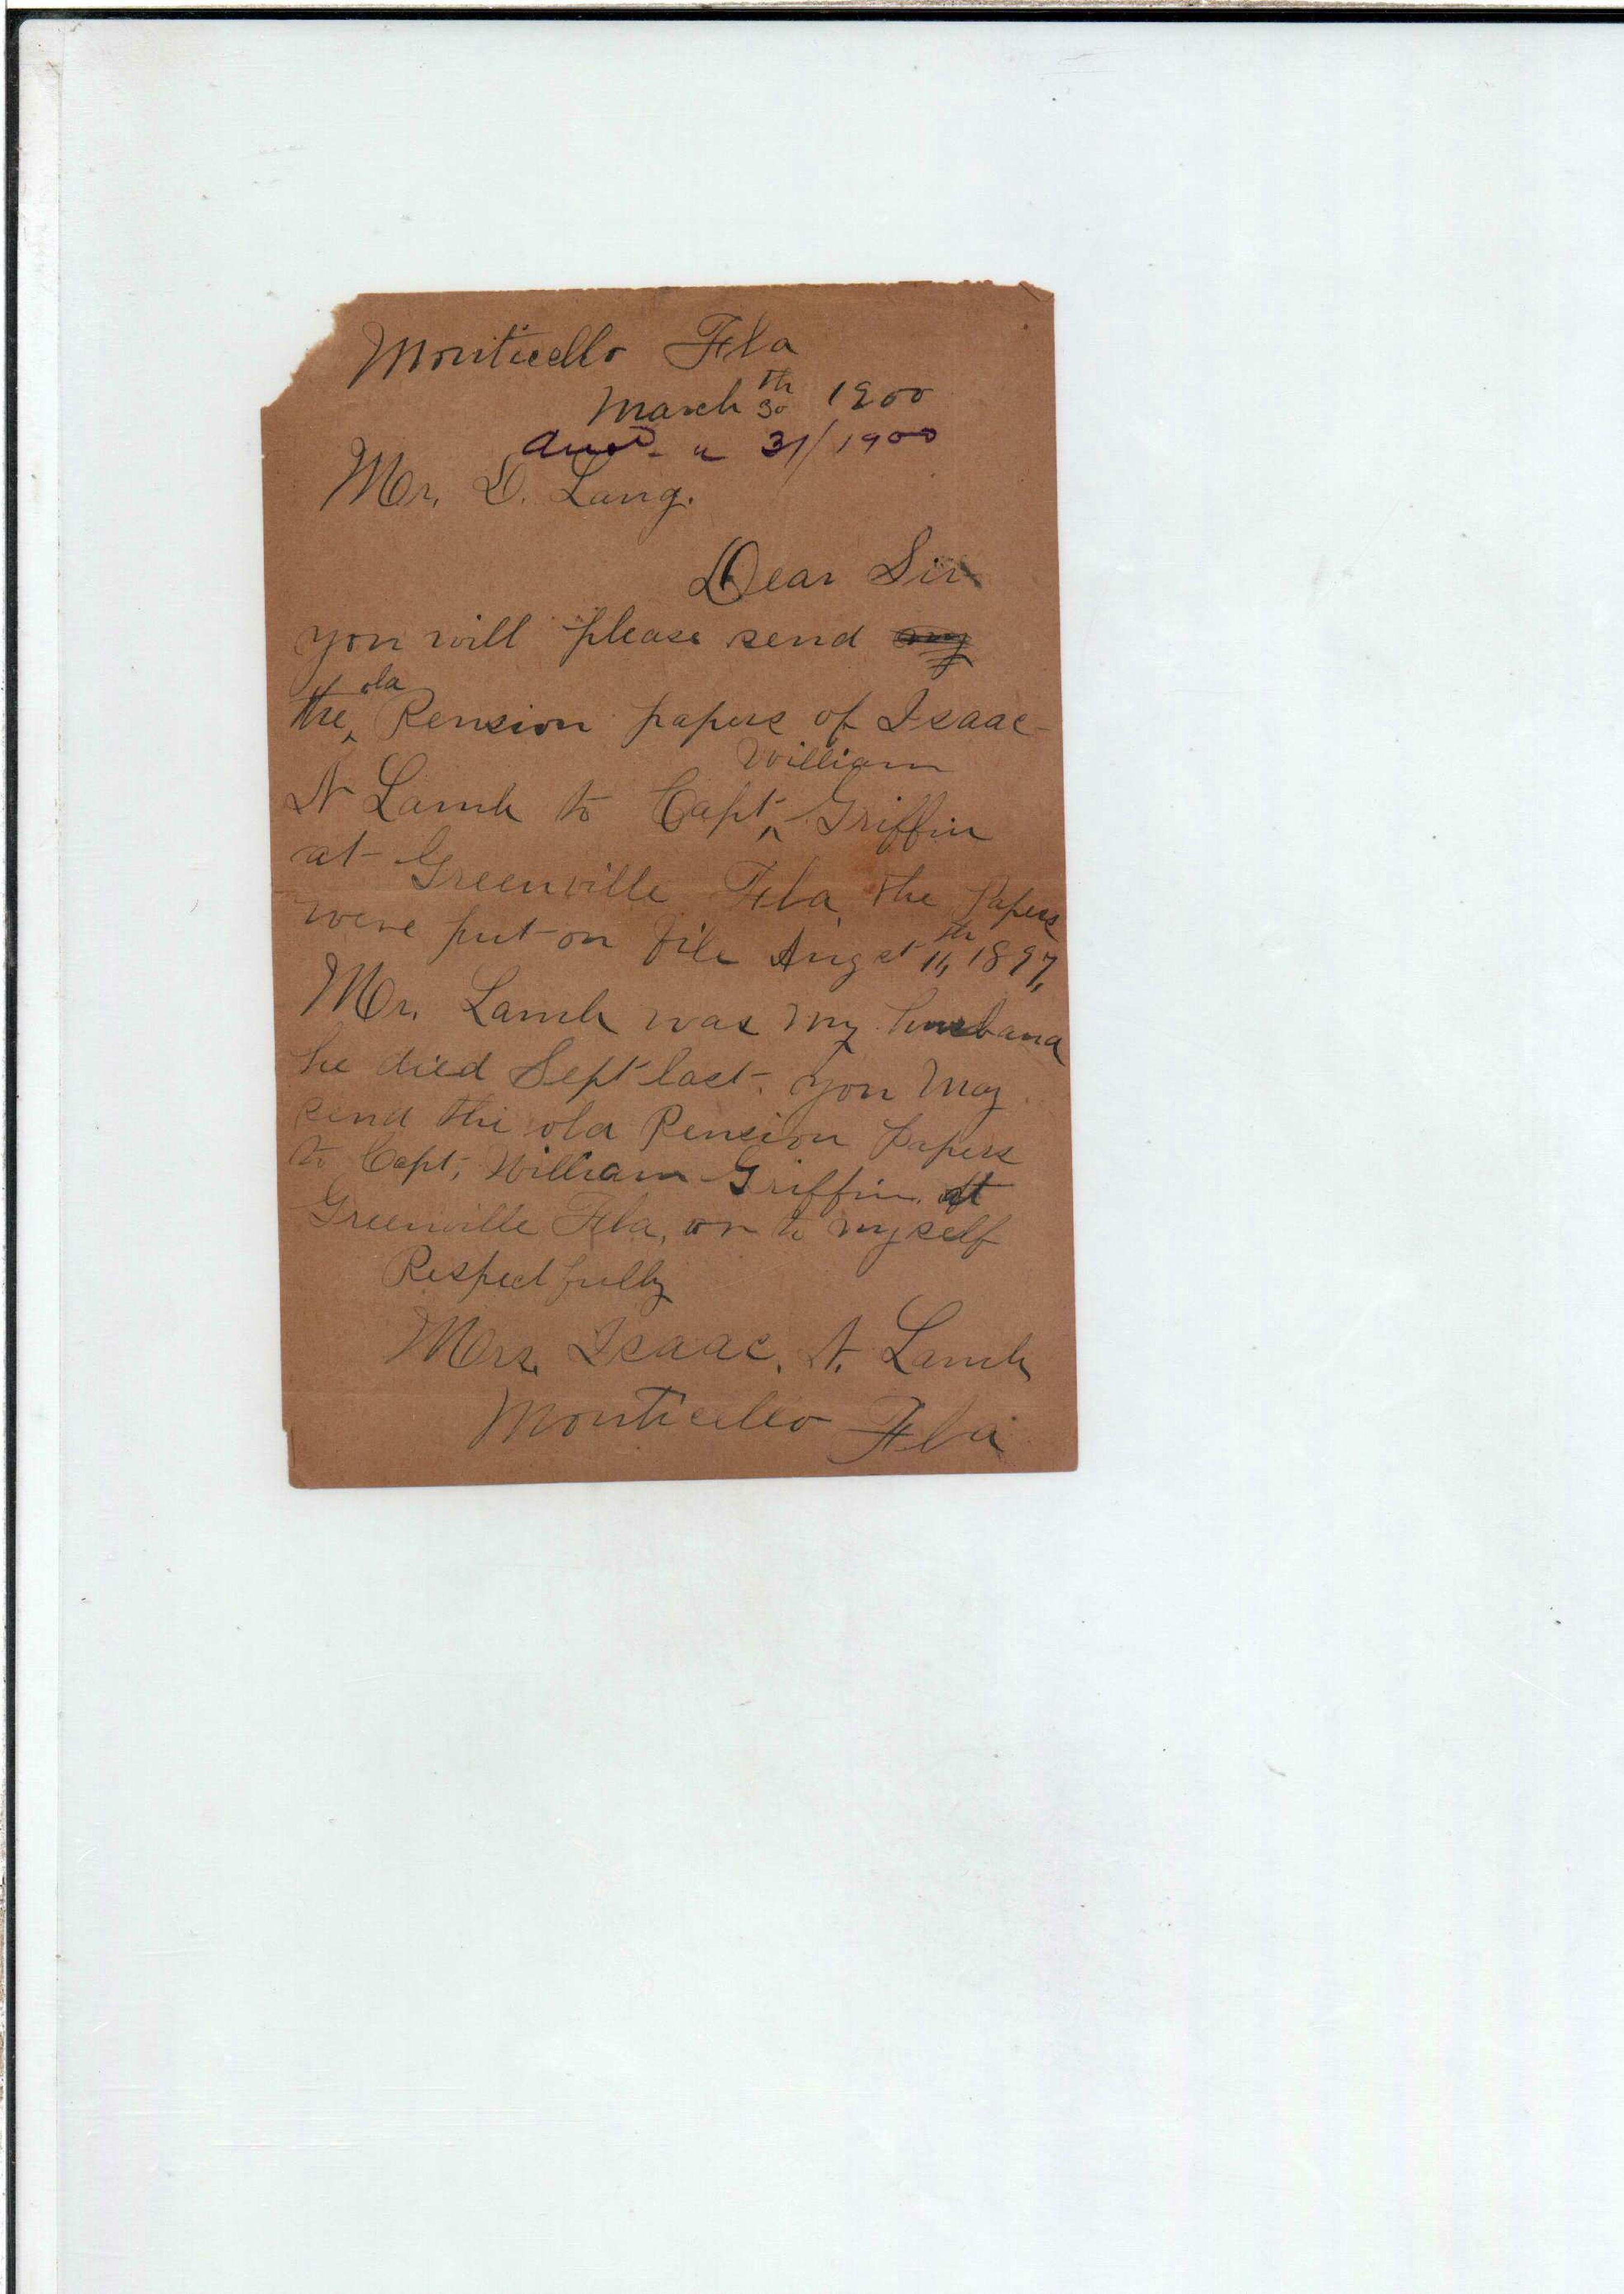 Monticello Fla
March 30th 1900
Ansd - " 31/1900
Mr. D. Lang.
Dear Sir
you will please send
the old Pension papers of Isaac
N Lamb to Capt, William Griffin
at Greenville Fla, the Papers
were put on file Augst 11th, 1897,
Mr. Lamb was my husband
he died Sept last. you may
send the old Pension papers
to Capt, William Griffin at
Greenville Fla, or to myself
Respectfully
Mrs. Isaac. N. Lamb
Monticello Fla